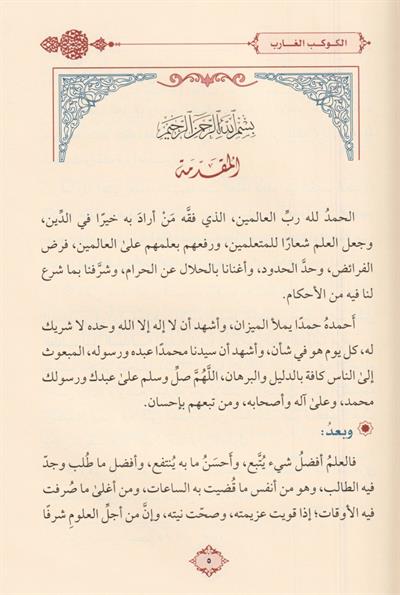 الكوكب الغارب
بِسْمِ اللَّهِ الرَّحْمَنِ الرَّحِيمِ
المقدّمة
الحمدُ لله ربِّ العالمين، الذي فقَّه مَنْ أرادَ به خيرًا في الدِّين،
وجعل العلم شعارًا للمتعلمين، ورفعهم بعلمهم علىٰ العالمين، فرض
الفرائض، وحدَّ الحدود، وأغنانا بالحلال عن الحرام، وشرَّفنا بما شرع
لنا فيه من الأحكام.
أَحمدهُ حمدًا يملأ الميزان، وأشهد أن لا إله إلا الله وحده لا شريك
له، كل يوم هو في شأن، وأشهد أن سيدنا محمدًا عبده ورسوله، المبعوث
إلىٰ الناس كافة بالدليل والبرهان، اللَّهُمَّ صلِّ وسلم علىٰ عبدك ورسولك
محمد، وعلىٰ آله وأصحابه، ومن تبعهم بإحسان.
وبعدُ:
فالعلمُ أفضلُ شيء يُتَّبع، وأَحسَنُ ما به يُنتفع، وأفضل ما طُلب وجدّ
فيه الطالب، وهو من أنفس ما قُضيت به الساعات، ومن أغلىٰ ما صُرفت
فيه الأوقات؛ إذا قويت عزيمته، وصحّت نيته، وإنَّ من أجلِّ العلومِ شرفًا
٥